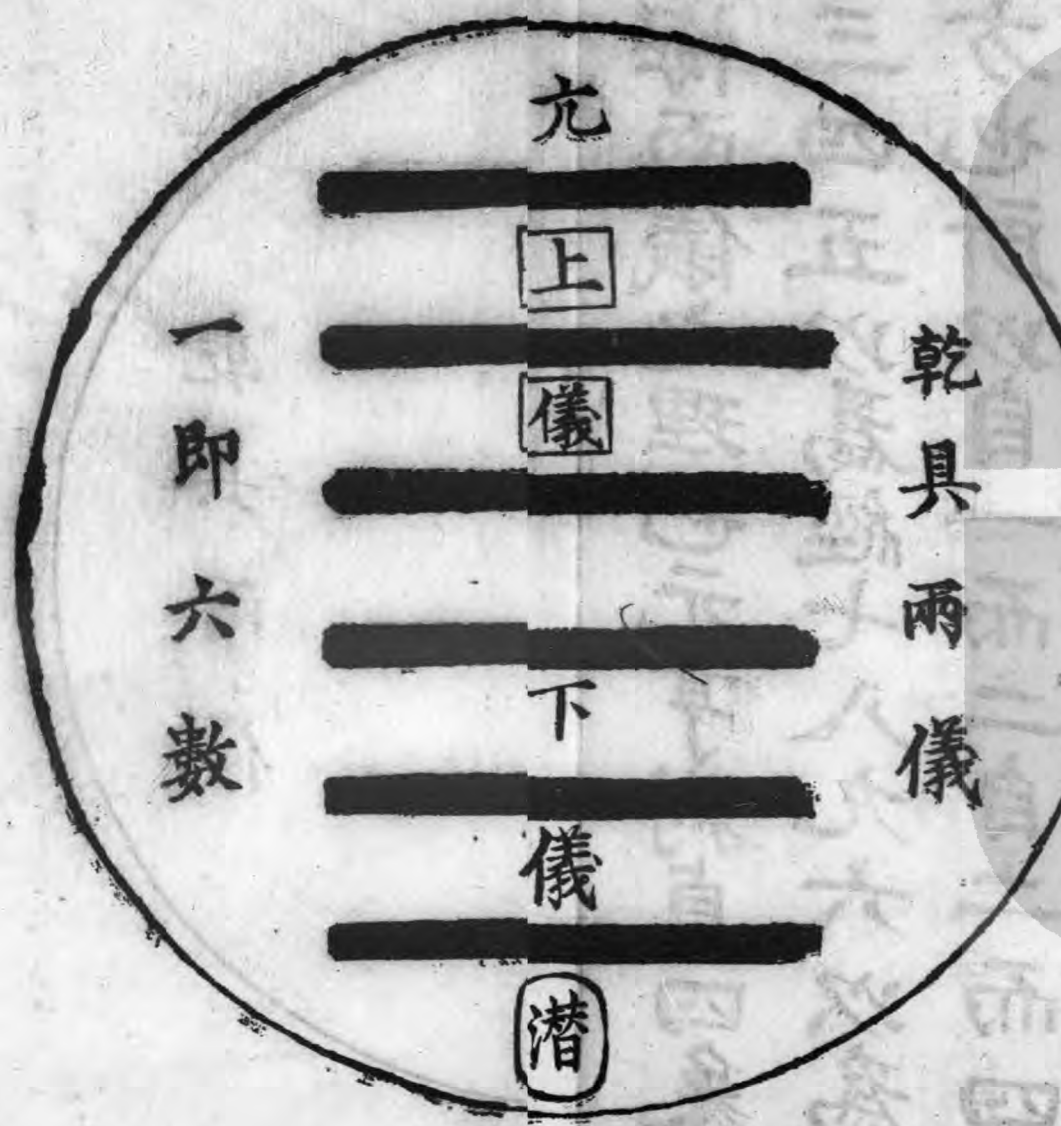 乾具兩儀
亢
上
儀
下
儀
潛
一即六數